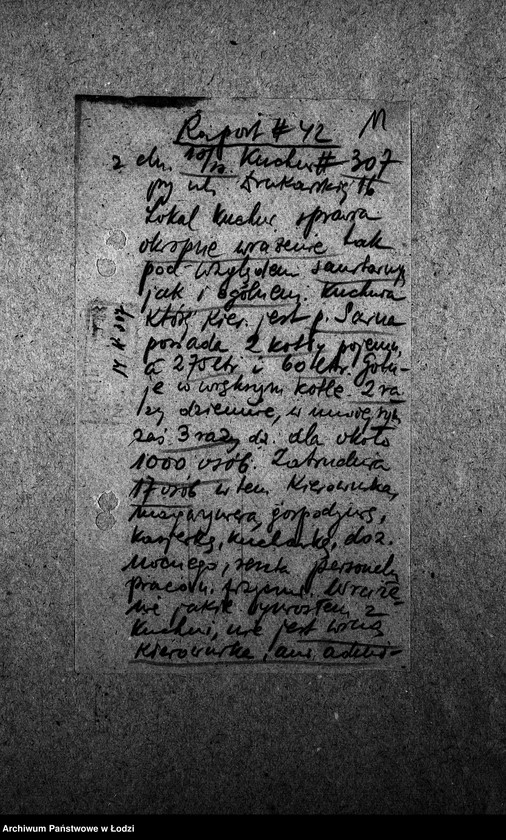 Raport # 42 M
z dn. 10/IX Kuchni # 307
przy ul. Drukarskiej 16
Lokal kuchni sprawia
okropne wrażenie tak
pod względem sanitarnym
jak i ogólnem. Kuchnia
której kier. jest p. Sarna
posiada 2 kotły pojemn.
à 275 ltr i 60 ltr. Gotu-
je w większym kotle 2 ra-
zy dziennie, w
zaś 3 razy dz. dla około
1000 osób. Zatrudnia
17 osób w tem Kierownika,
magazyniera, gospodynię,
kasjerkę, kucharkę, doz.
nocnego, reszta personelu
pracown. fizyczni. Wraże-
nie jakie wyniosłem z
kuchni, nie jest winą
kierownika, ani admi-
Archiwum Państwowe w Łodzi